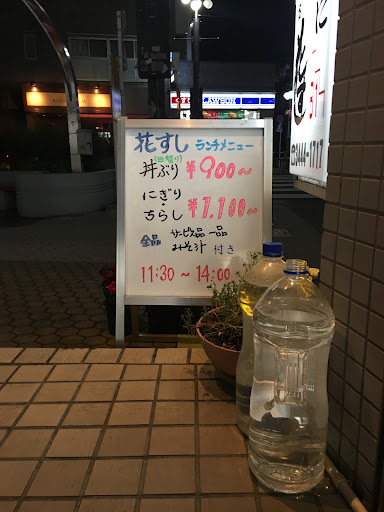 花すし ランチメニュー
(日替り)
丼ぶり ¥900~
にぎり
・
ちらし ¥1,100~
全品 サービス品 一品
みそ汁 付き
11:30 ~ 14:00
LAWSON